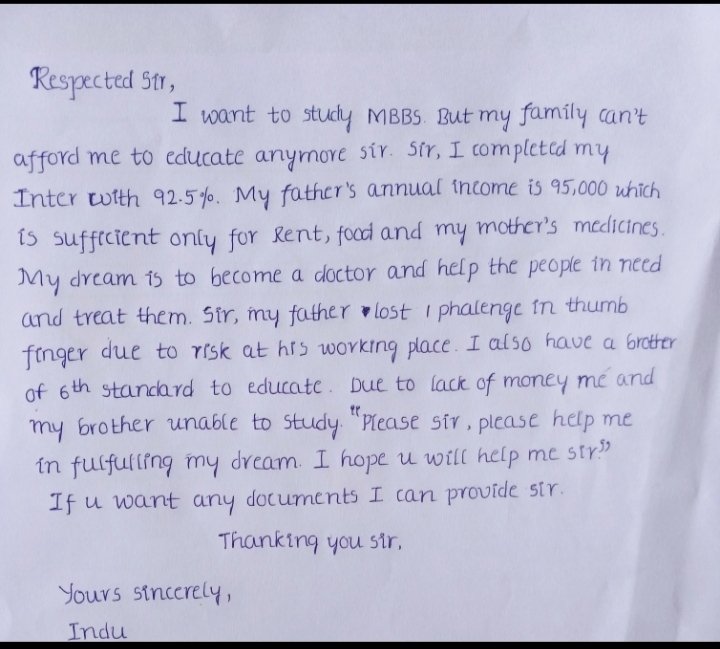 Respected Sir,
I want to study MBBS. But my family can't
afford me to educate anymore sir. Sir, I completed my
Inter with 92.5%. My father's annual income is 95,000 which
is sufficient only for Rent, food and my mother's medicines.
My dream is to become a doctor and help the people in need
and treat them. Sir, my father lost 1 phalenge in thumb
finger due to risk at his working place. I also have a brother
of 6th standard to educate. Due to lack of money me and
my brother unable to study. "Please sir, please help me
in fulfulling my dream. I hope u will help me sir."
If u want any documents I can provide sir.
Thanking you sir,
Yours sincerely,
Indu